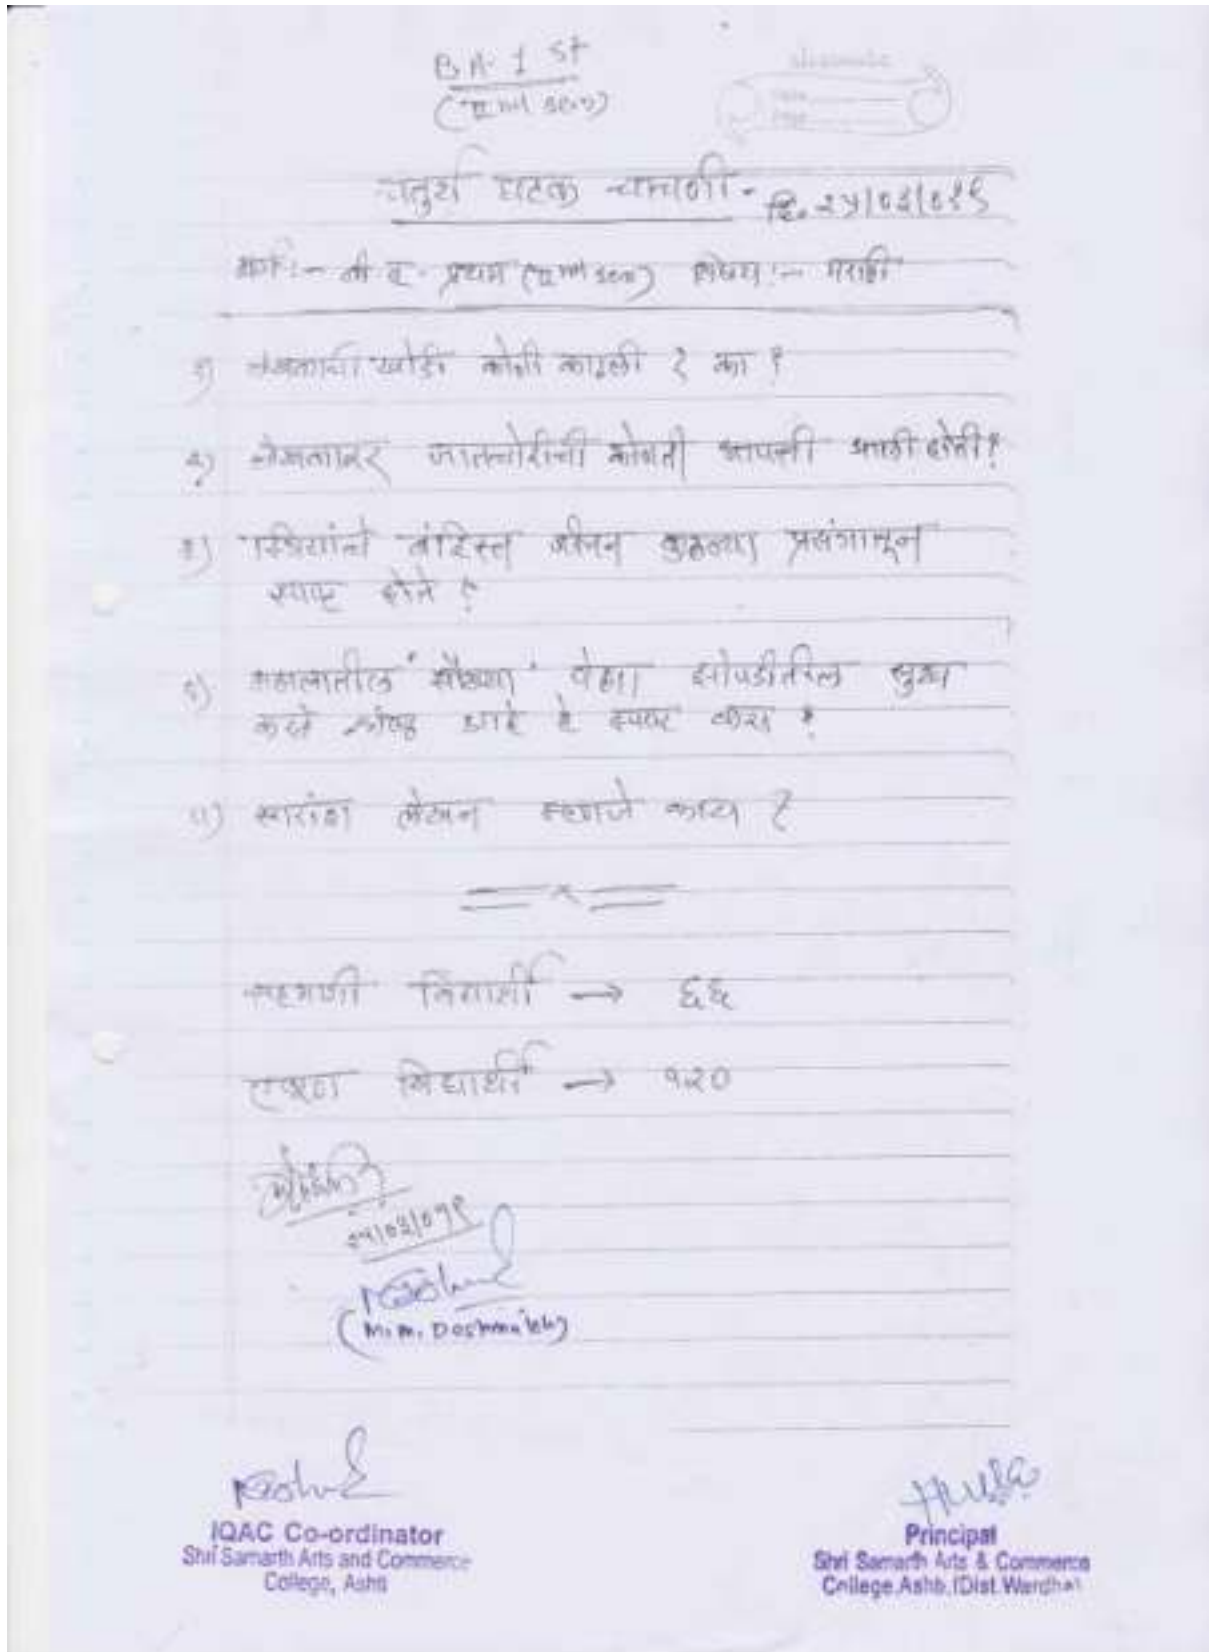 BA-1 st
(IInd sem)
चतुर्थ घटक चाचणी - दि. २५/०३/०१९
वर्ग :- बी ए - प्रथम (IInd sem) विषय :- मराठी
१) लेखकाची खोडी कोणी काढली ? का ?
२) लेखकावर जातचोरीची कोणती आपत्ती आली होती ?
३) स्त्रियांचे बंदिस्त जीवन कुठल्या प्रसंगातून
स्पष्ट होते ?
४) महालातील पेक्षा झोपडीतील सुख
कसे श्रेष्ठ आहे हे स्पष्ट करा ?
५) सारांश लेखन म्हणजे काय ?
== x ==
सहभागी विद्यार्थी → ६६
एकूण विद्यार्थी → १२०
२५/०३/०१९
(M.M. Deshmukh)
IQAC Co-ordinator
Shri Samarth Arts and Commerce
College, Ashti
Principal
Shri Samarth Arts & Commerce
College, Ashti, (Dist. Wardha)